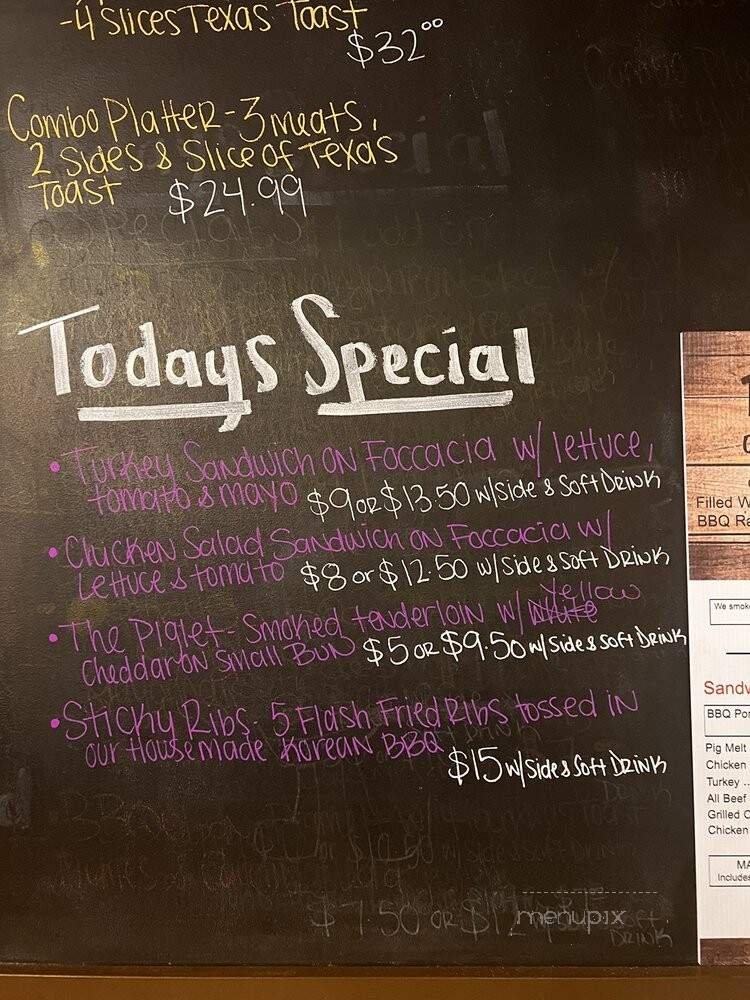 -4 Slices Texas Toast
$32⁰⁰
Combo Platter - 3 meats,
2 Sides & Slice of Texas
Toast $24.99
Todays Special
• Turkey Sandwich on Foccacia w/ lettuce,
tomato & mayo $9 or $13.50 w/Side & Soft Drink
• Chicken Salad Sandwich on Foccacia w/
Lettuce & tomato $8 or $12.50 w/Side & Soft Drink
Yellow
• The Piglet - Smoked tenderloin w/ white
Cheddar on Small Bun $5 or $9.50 w/Side & Soft Drink
• Sticky Ribs - 5 Flash Fried Ribs tossed in
our Housemade Korean BBQ
$15 w/Side & Soft Drink
$7.50 or
Drink
menupix
Filled W
BBQ Ra
We smok
Sandw
BBQ Por
Pig Melt
Chicken
Turkey ..
All Beef
Grilled C
Chicken
MA
Includes